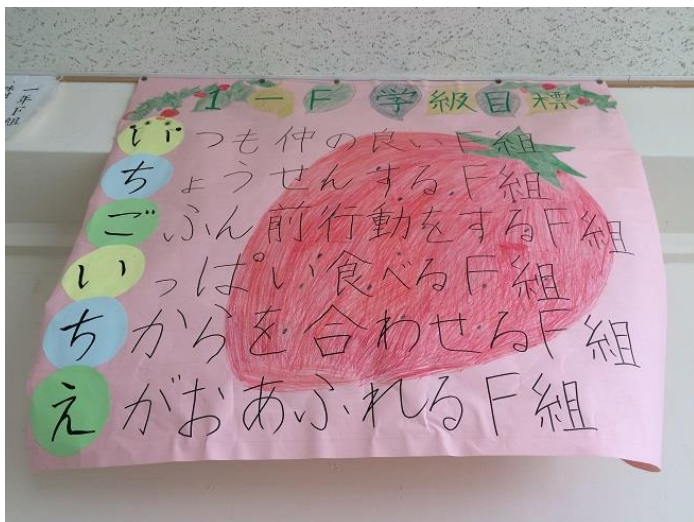 1-F 学級目標
いつも仲の良いF組
ちょうせんするF組
ごふん前行動をするF組
いっぱい食べるF組
ちからを合わせるF組
えがおあふれるF組
一年F組